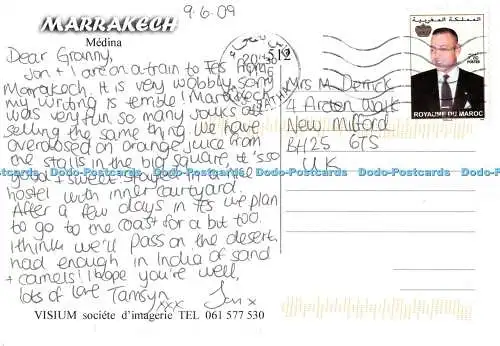 9.6.09
MARRAKECH
Médina
Dear Granny,
Jon + I are on a train to Fes from
Marrakech. It is very wobbly sorry
my writing is terrible! Marrakech
was very fun so many souks all
selling the same thing. We have
overdosed on orange juice from
the stalls in the big square, it's so
good + sweet. Stayed in a nice
hostel with inner courtyard.
After a few days in Fes we plan
to go to the coast for a bit too.
I think we'll pass on the desert,
had enough in India of sand
+ camels! I hope you're well,
lots of love Tamsyn xxx Jon x
VISIUM sociéte d'imagerie TEL 061 577 530
512
Mrs M Derrick
4 Arton Walk
New Milford
BH25 6TS
UK
المملكة المغربية
ROYAUME DU MAROC
Dodo-Postcards Dodo-Postcards Dodo-Postcards Dodo-Postcards Dodo-Postcards Dodo-Postcards